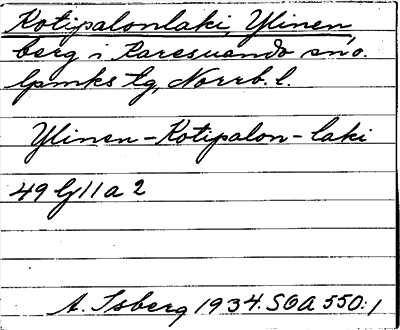 Kotipalonlaki, Ylinen
berg i Karesuando sn o.
lpmks tg, Norrb. l.
Ylinen-Kotipalon-laki
49 Gj 11 a 2
A. Isberg 1934. SOA 550:1